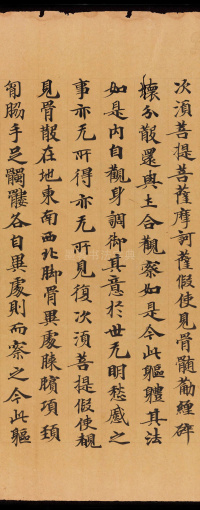 次湏菩提菩薩摩訶薩假使見骨髓勤經碎
壞分散還與土合觀察如是今此軀體其法
如是内自觀身調御其意於世无明愁慼之
事亦无所得亦无所見復次湏菩提假使覩
見骨散在地東南西北脚骨異處膝髕項頸
匈脇手足髑髏各自異處則而察之今此軀